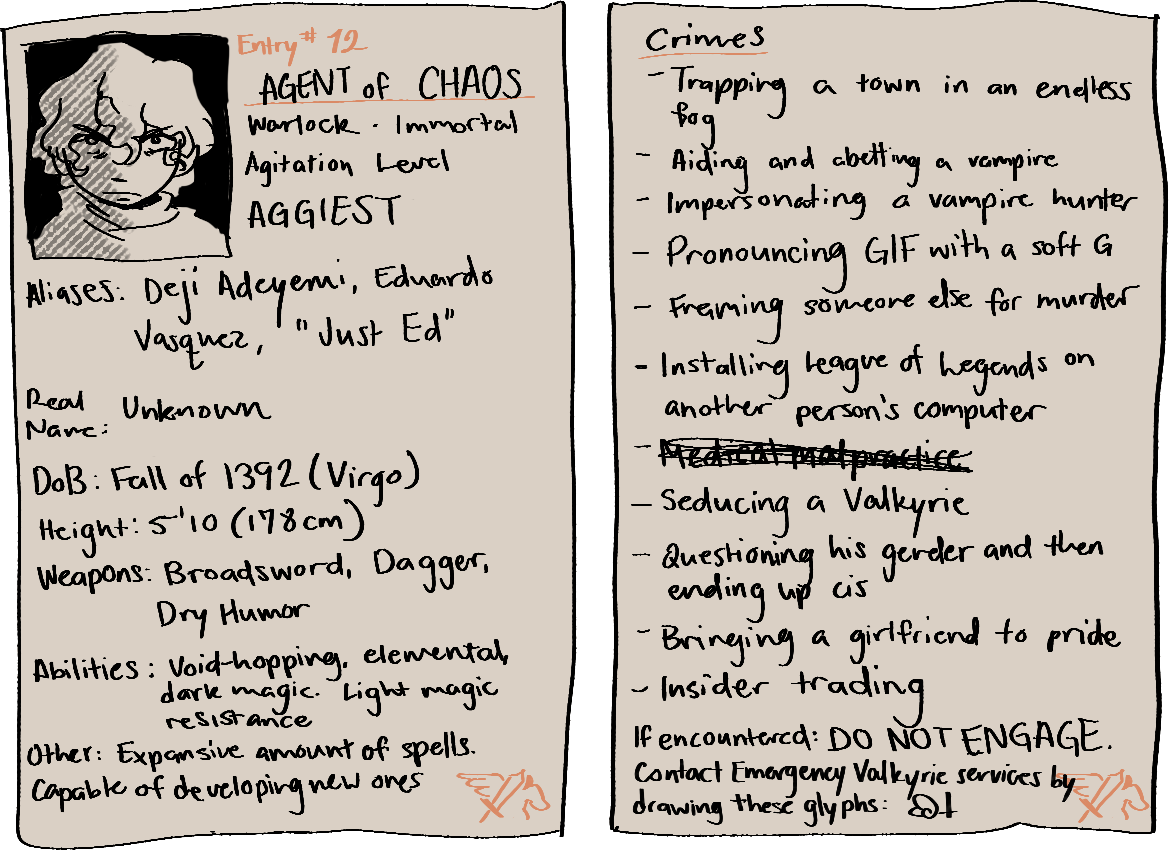 Entry # 12
AGENT of CHAOS
Warlock · Immortal
Agitation Level
AGGIEST
Aliases: Deji Adeyemi, Eduardo
Vasquez, "Just Ed"
Real
Name: Unknown
DoB: Fall of 1392 (Virgo)
Height: 5'10 (178cm)
Weapons: Broadsword, Dagger,
Dry Humor
Abilities: Void-hopping, elemental,
dark magic. Light magic
resistance
Other: Expansive amount of spells.
Capable of developing new ones
Crimes
- Trapping a town in an endless
fog
- Aiding and abetting a vampire
- Impersonating a vampire hunter
- Pronouncing GIF with a soft G
- Framing someone else for murder
- Installing League of Legends on
another person's computer
- Medical malpractice
- Seducing a Valkyrie
- Questioning his gender and then
ending up cis
- Bringing a girlfriend to pride
- Insider trading
If encountered: DO NOT ENGAGE.
Contact Emergency Valkyrie services by
drawing these glyphs: